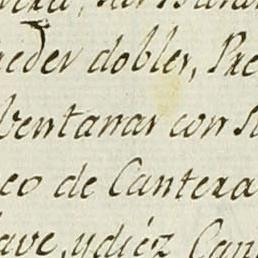 redes dobles, Pre
ventanas con su
co de Cantera
ave, y diéz Can